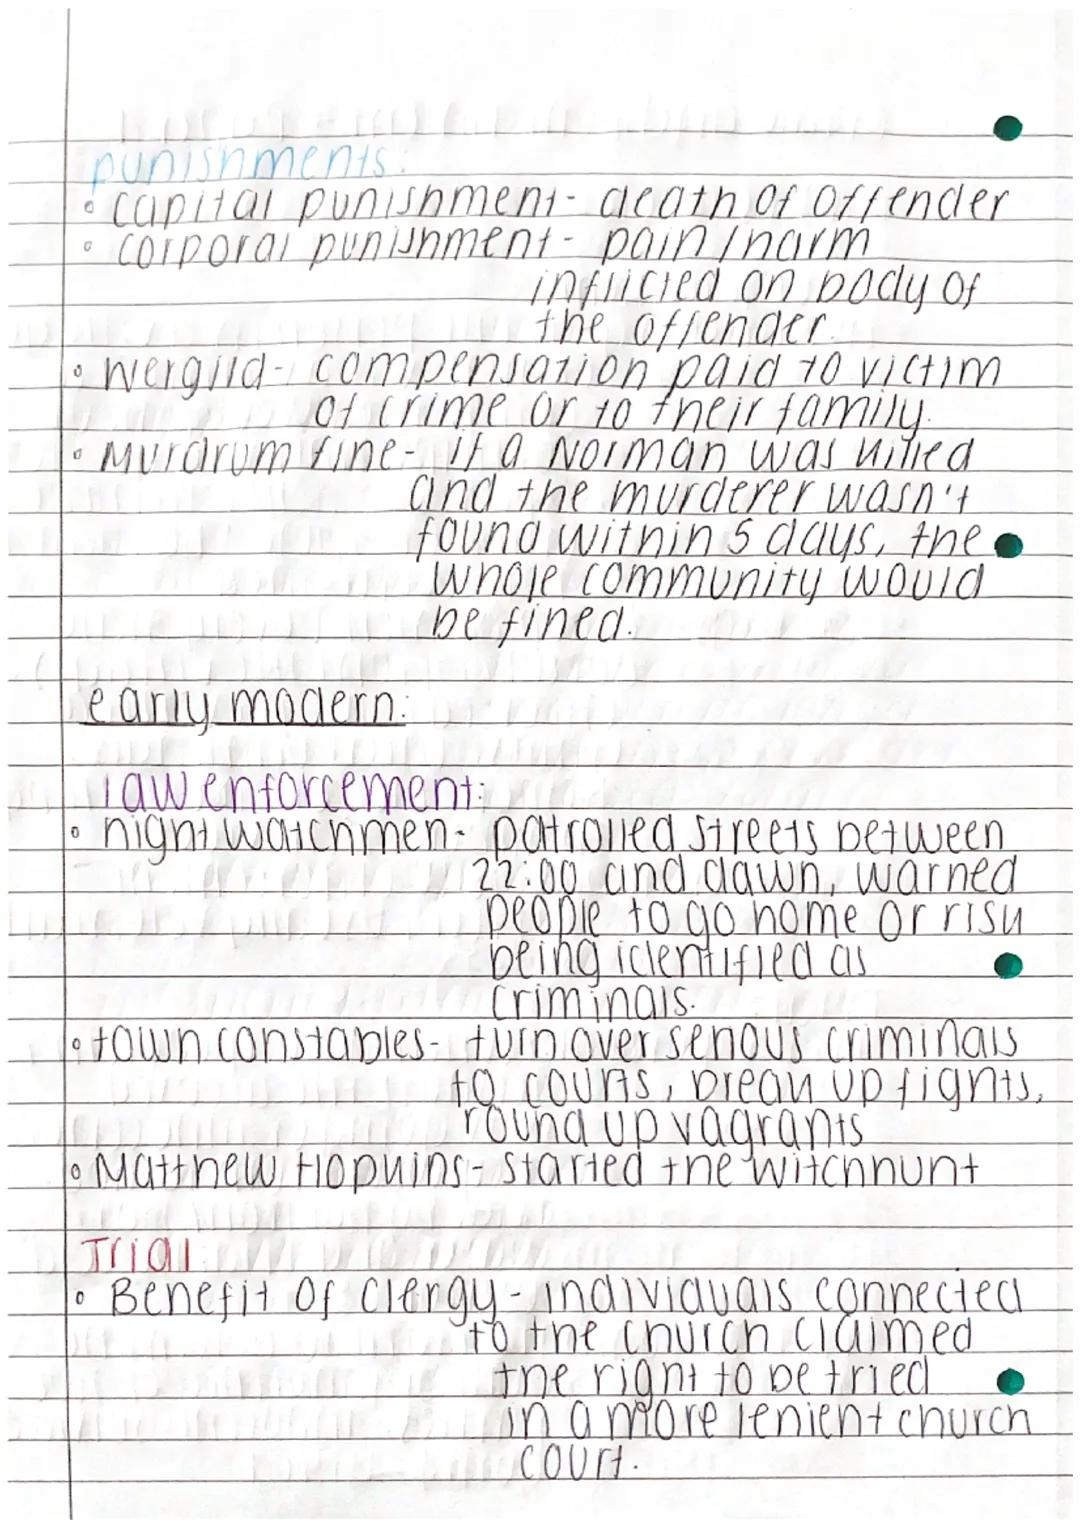 punishments:
• capital punishment- death of offender
• corporal punishment- pain/harm
inflicted on body of
the offender.
• wergild- compensation paid to victim
of crime or to their family.
• Murdrum fine- if a Norman was killed
and the murderer wasn't
found within 5 days, the
whole community would
be fined.
early modern:
law enforcement:
• night watchmen- patrolled streets between
22:00 and dawn, warned
people to go home or risk
being identified as
criminals.
• town constables- turn over serious criminals
to courts, break up fights,
round up vagrants
• Matthew Hopkins- started the witchhunt
Trial
• Benefit of clergy- individuals connected
to the church claimed
the right to be tried
in a more lenient church
court.